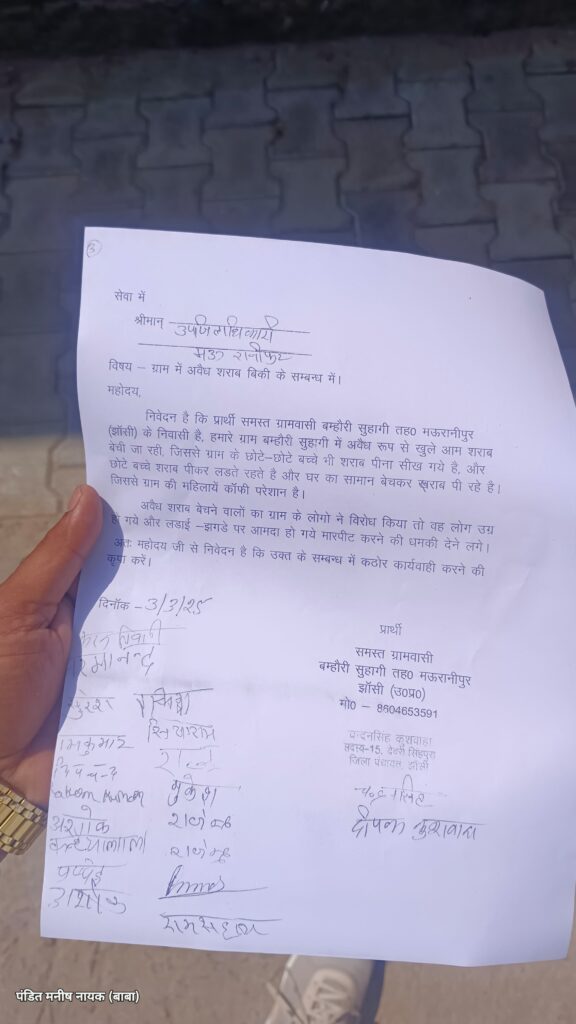 3
सेवा में
श्रीमान् उपजिलाधिकारी
मऊ रानीपुर
विषय – ग्राम में अवैध शराब बिकी के सम्बन्ध में।
महोदय,
निवेदन है कि प्रार्थी समस्त ग्रामवासी बम्हौरी सुहागी तह0 मऊरानीपुर
(झॉसी) के निवासी है, हमारे ग्राम बम्हौरी सुहागी में अवैध रूप से खुले आम शराब
बेची जा रही, जिससे ग्राम के छोटे–छोटे बच्चे भी शराब पीना सीख गये है, और
छोटे बच्चे शराब पीकर लडते रहते है और घर का सामान बेचकर खराब पी रहे है।
जिससे ग्राम की महिलायें कॉफी परेशान है।
अवैध शराब बेचने वालों का ग्राम के लोगो ने विरोध किया तो वह लोग उग्र
हो गये और लडाई –झगडे पर आमदा हो गये मारपीट करने की धमकी देने लगे।
अतः महोदय जी से निवेदन है कि उक्त के सम्बन्ध में कठोर कार्यवाही करने की
कृपा करें।
दिनॉक – 3/3/25
प्रार्थी
समस्त ग्रामवासी
बम्हौरी सुहागी तह0 मऊरानीपुर
झॉसी (उ0प्र0)
मो0 – 8604653591
सदस्य-15, देवरी सिंहपुरा
जिला पंचायत झाँसी
दीपक कुशवाहा
सुरेश
सियाराम
राजू
मुकेश
अशोक
पप्पू
अशोक
रामसहाय
पंडित मनीष नायक (बाबा)